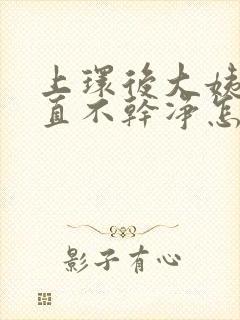 上環後大姨
直不幹淨怎
影子有心